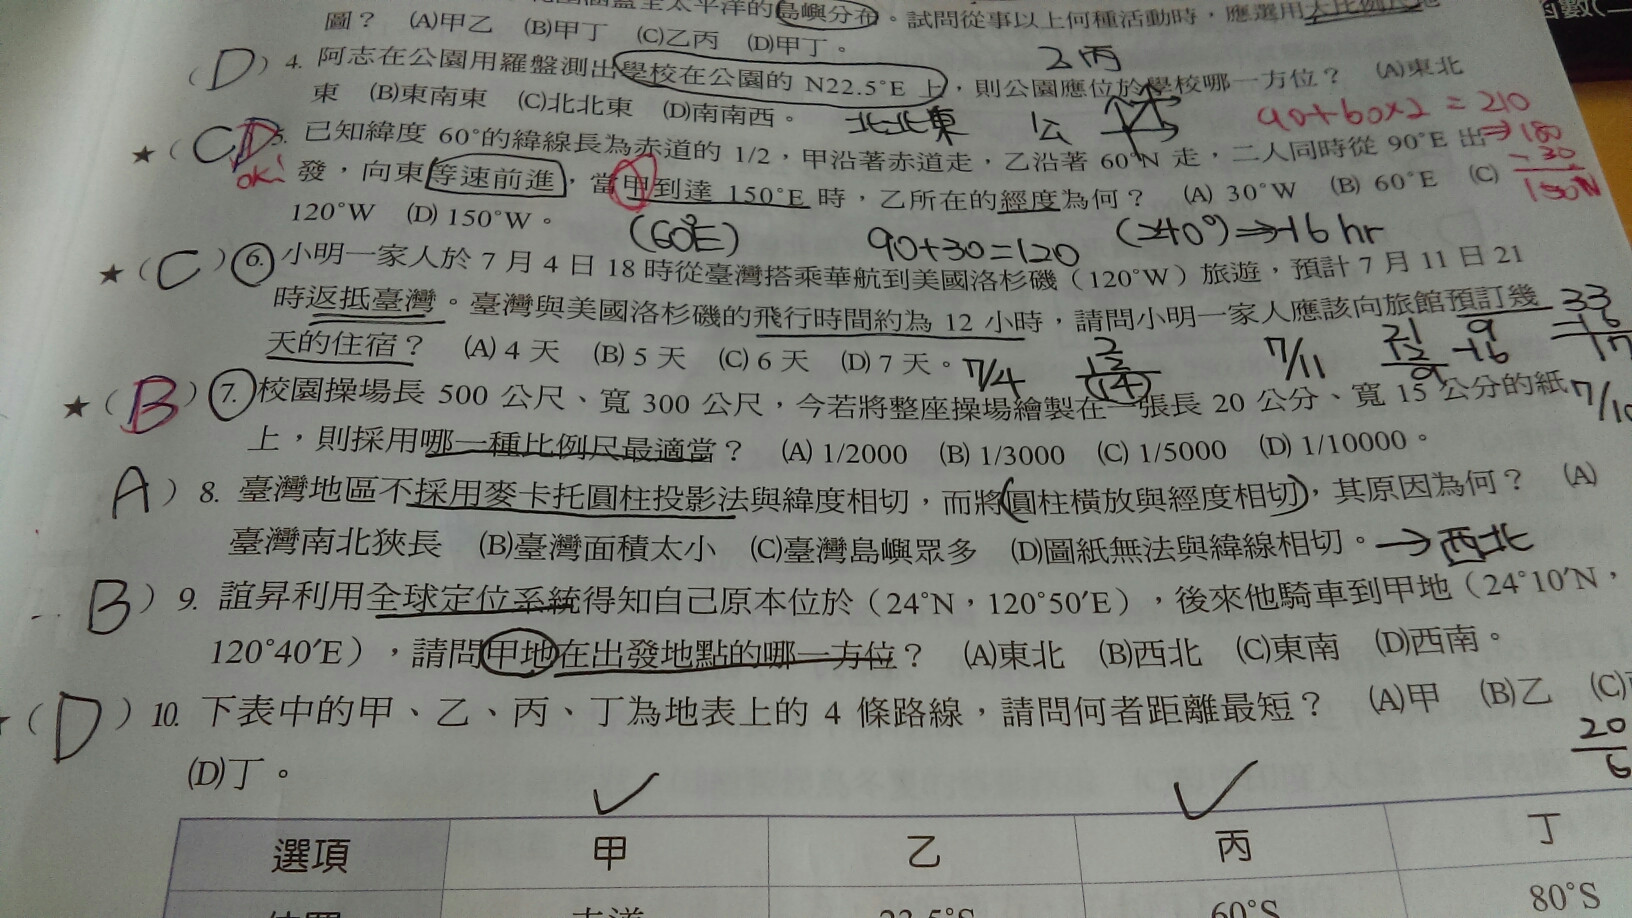 島嶼分布。試問從事以上何種活動時，應選用大比例尺地
圖？ (A)甲乙 (B)甲丁 (C)乙丙 (D)甲丁。
乙丙
(D) 4. 阿志在公園用羅盤測出學校在公園的 N22.5°E 上，則公園應位於學校哪一方位？ (A)東北
東 (B)東南東 (C)北北東 (D)南南西。
北北東 公
90+60×2 = 210
⇒180
-30
150W
★(CD) 5. 已知緯度 60°的緯線長為赤道的 1/2，甲沿著赤道走，乙沿著 60°N 走，二人同時從 90°E 出
ok!
發，向東等速前進，當甲到達 150°E 時，乙所在的經度為何？ (A) 30°W (B) 60°E (C)
120°W (D) 150°W。
(60°E) 90+30=120 (240°)⇒-16 hr
★(C) 6. 小明一家人於 7 月 4 日 18 時從臺灣搭乘華航到美國洛杉磯（120°W）旅遊，預計 7 月 11 日 21
時返抵臺灣。臺灣與美國洛杉磯的飛行時間約為 12 小時，請問小明一家人應該向旅館預訂幾
天的住宿？ (A) 4 天 (B) 5 天 (C) 6 天 (D) 7 天。
7/4 2 12 (14) 7/11 21 12 9 9 -16 33 16 17
7/10
★(B) 7. 校園操場長 500 公尺、寬 300 公尺，今若將整座操場繪製在一張長 20 公分、寬 15 公分的紙
上，則採用哪一種比例尺最適當？ (A) 1/2000 (B) 1/3000 (C) 1/5000 (D) 1/10000。
A) 8. 臺灣地區不採用麥卡托圓柱投影法與緯度相切，而將圓柱橫放與經度相切，其原因為何？ (A)
臺灣南北狹長 (B)臺灣面積太小 (C)臺灣島嶼眾多 (D)圖紙無法與緯線相切。
→西北
B) 9. 誼昇利用全球定位系統得知自己原本位於（24°N，120°50′E），後來他騎車到甲地（24°10′N，
120°40′E），請問甲地在出發地點的哪一方位？ (A)東北 (B)西北 (C)東南 (D)西南。
(D) 10. 下表中的甲、乙、丙、丁為地表上的 4 條路線，請問何者距離最短？ (A)甲 (B)乙 (C)
(D)丁。
20
6
選項 甲 乙 丙 丁
赤道 23.5°S 60°S 80°S